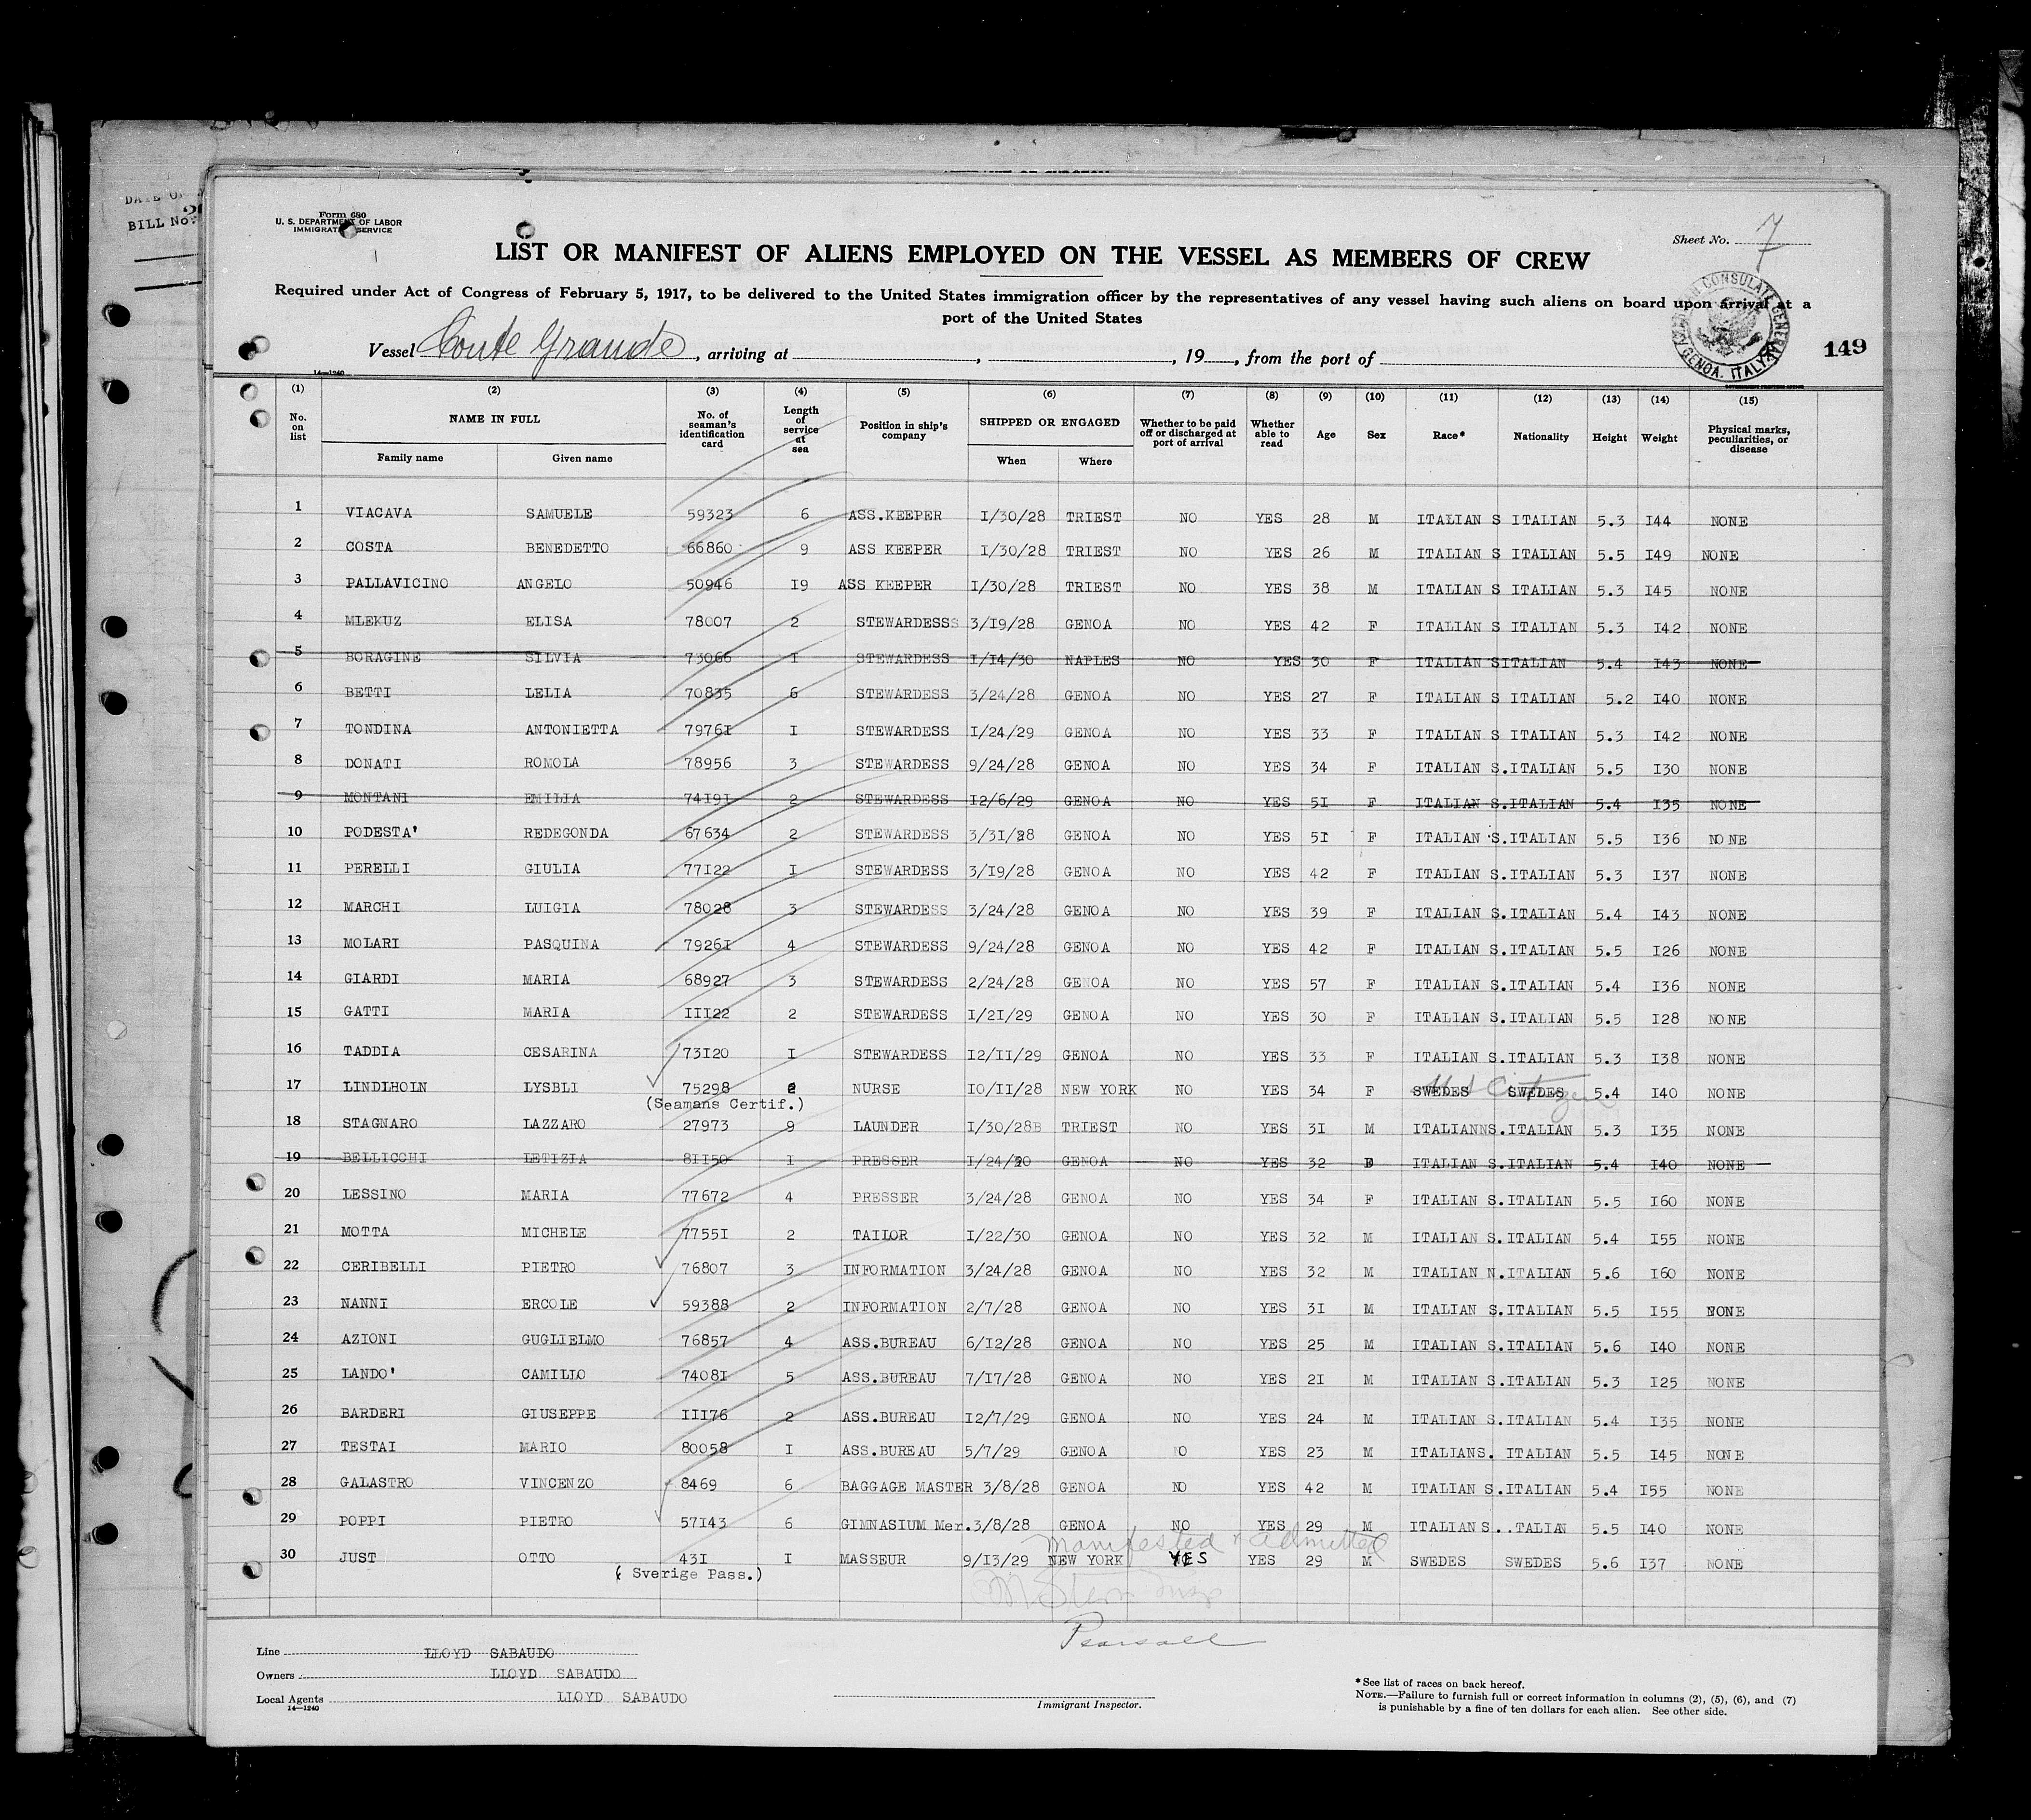 DATE O
BILL No.
Form 680
U. S. DEPARTMENT OF LABOR
IMMIGRAT SERVICE
Sheet No. 7
LIST OR MANIFEST OF ALIENS EMPLOYED ON THE VESSEL AS MEMBERS OF CREW
Required under Act of Congress of February 5, 1917, to be delivered to the United States immigration officer by the representatives of any vessel having such aliens on board upon arrival at a
port of the United States
CONSULATE GENERAL GENOA. ITALY
Vessel Conte Grande, arriving at , , 19 , from the port of
149
14—1240
(1) (2) (3) (4) (5) (6) (7) (8) (9) (10) (11) (12) (13) (14) (15)
No. on list NAME IN FULL No. of seaman's identification card Length of service at sea Position in ship's company SHIPPED OR ENGAGED Whether to be paid off or discharged at port of arrival Whether able to read Age Sex Race* Nationality Height Weight Physical marks, peculiarities, or disease
Family name Given name When Where
1 VIACAVA SAMUELE 59323 6 ASS.KEEPER I/30/28 TRIEST NO YES 28 M ITALIAN S ITALIAN 5.3 I44 NONE
2 COSTA BENEDETTO 66860 9 ASS KEEPER I/30/28 TRIEST NO YES 26 M ITALIAN S ITALIAN 5.5 I49 NONE
3 PALLAVICINO ANGELO 50946 I9 ASS KEEPER I/30/28 TRIEST NO YES 38 M ITALIAN S ITALIAN 5.3 I45 NONE
4 MLEKUZ ELISA 78007 2 STEWARDESSS 3/I9/28 GENOA NO YES 42 F ITALIAN S ITALIAN 5.3 I42 NONE
5 BORAGINE SILVIA 73066 I STEWARDESS I/I4/30 NAPLES NO YES 30 F ITALIAN SITALIAN 5.4 I43 NONE
6 BETTI LELIA 70835 6 STEWARDESS 3/24/28 GENOA NO YES 27 F ITALIAN S ITALIAN 5.2 I40 NONE
7 TONDINA ANTONIETTA 7976I I STEWARDESS I/24/29 GENOA NO YES 33 F ITALIAN S ITALIAN 5.3 I42 NONE
8 DONATI ROMOLA 78956 3 STEWARDESS 9/24/28 GENOA NO YES 34 F ITALIAN S.ITALIAN 5.5 I30 NONE
9 MONTANI EMILIA 74I9I 2 STEWARDESS I2/6/29 GENOA NO YES 5I F ITALIAN S.ITALIAN 5.4 I35 NONE
10 PODESTA' REDEGONDA 67634 2 STEWARDESS 3/3I/28 GENOA NO YES 5I F ITALIAN S.ITALIAN 5.5 I36 NONE
11 PERELLI GIULIA 77I22 I STEWARDESS 3/I9/28 GENOA NO YES 42 F ITALIAN S.ITALIAN 5.3 I37 NONE
12 MARCHI LUIGIA 78028 3 STEWARDESS 3/24/28 GENOA NO YES 39 F ITALIAN S.ITALIAN 5.4 I43 NONE
13 MOLARI PASQUINA 7926I 4 STEWARDESS 9/24/28 GENOA NO YES 42 F ITALIAN S.ITALIAN 5.5 I26 NONE
14 GIARDI MARIA 68927 3 STEWARDESS 2/24/28 GENOA NO YES 57 F ITALIAN S.ITALIAN 5.4 I36 NONE
15 GATTI MARIA III22 2 STEWARDESS I/2I/29 GENOA NO YES 30 F ITALIAN S.ITALIAN 5.5 I28 NONE
16 TADDIA CESARINA 73I20 I STEWARDESS I2/II/29 GENOA NO YES 33 F ITALIAN S.ITALIAN 5.3 I38 NONE
17 LINDLHOLN LYSBLI 75298 2 NURSE I0/II/28 NEW YORK NO YES 34 F SWEDES SWEDES U S Citizen 5.4 I40 NONE
(Seamans Certif.)
18 STAGNARO LAZZARO 27973 9 LAUNDER I/30/28B TRIEST NO YES 3I M ITALIANNS.ITALIAN 5.3 I35 NONE
19 BELLICCHI LETIZIA 8II50 I PRESSER I/24/30 GENOA NO YES 32 F ITALIAN S.ITALIAN 5.4 I40 NONE
20 LESSINO MARIA 77672 4 PRESSER 3/24/28 GENOA NO YES 34 F ITALIAN S.ITALIAN 5.5 I60 NONE
21 MOTTA MICHELE 7755I 2 TAILOR I/22/30 GENOA NO YES 32 M ITALIAN S.ITALIAN 5.4 I55 NONE
22 CERIBELLI PIETRO 76807 3 INFORMATION 3/24/28 GENOA NO YES 32 M ITALIAN N.ITALIAN 5.6 I60 NONE
23 NANNI ERCOLE 59388 2 INFORMATION 2/7/28 GENOA NO YES 3I M ITALIAN S.ITALIAN 5.5 I55 NONE
24 AZIONI GUGLIELMO 76857 4 ASS.BUREAU 6/I2/28 GENOA NO YES 25 M ITALIAN S.ITALIAN 5.6 I40 NONE
25 LANDO' CAMILLO 7408I 5 ASS.BUREAU 7/I7/28 GENOA NO YES 2I M ITALIAN S.ITALIAN 5.3 I25 NONE
26 BARDERI GIUSEPPE III76 2 ASS.BUREAU I2/7/29 GENOA NO YES 24 M ITALIAN S.ITALIAN 5.4 I35 NONE
27 TESTAI MARIO 80058 I ASS.BUREAU 5/7/29 GENOA NO YES 23 M ITALIANS. ITALIAN 5.5 I45 NONE
28 GALASTRO VINCENZO 8469 6 BAGGAGE MASTER 3/8/28 GENOA NO YES 42 M ITALIAN S.ITALIAN 5.4 I55 NONE
29 POPPI PIETRO 57I43 6 GIMNASIUM Mer.3/8/28 GENOA NO YES 29 M ITALIANS..TALIAN 5.5 I40 NONE
Manifested & admitted
30 JUST OTTO 43I I MASSEUR 9/I3/29 NEW YORK YES YES 29 M SWEDES SWEDES 5.6 I37 NONE
( Sverige Pass.)
M Stern Insp
Pearsall
Line LLOYD SABAUDO
Owners LLOYD SABAUDO
Local Agents LLOYD SABAUDO
14—1240
Immigrant Inspector.
*See list of races on back hereof.
NOTE.—Failure to furnish full or correct information in columns (2), (5), (6), and (7)
is punishable by a fine of ten dollars for each alien. See other side.